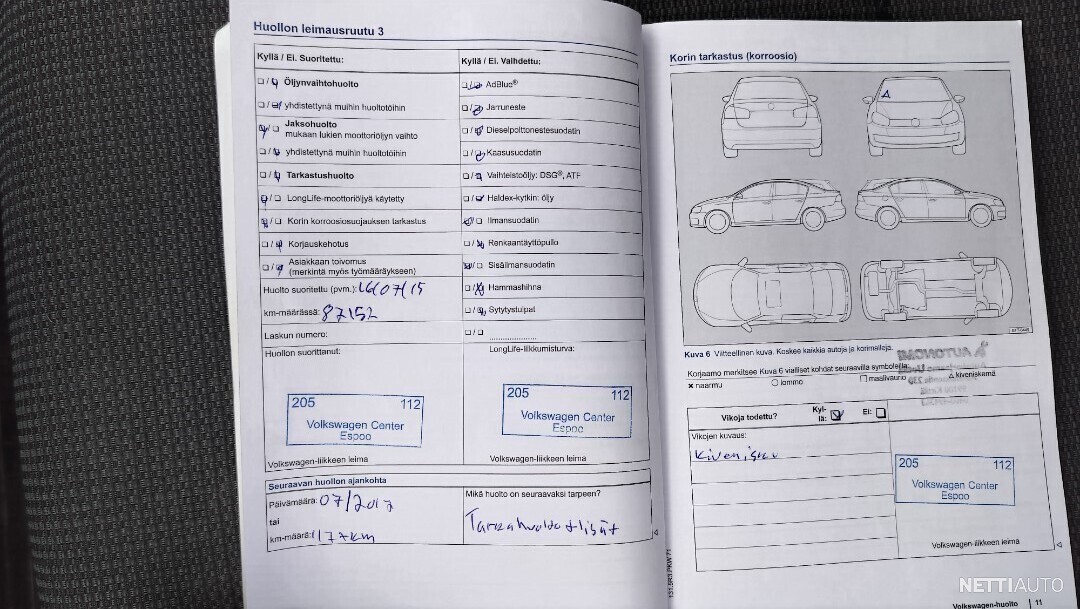 Huollon leimausruutu 3
Kyllä / Ei. Suoritettu:
Öljynvaihtohuolto
yhdistettynä muihin huoltotöihin
Jaksohuolto
mukaan lukien moottoriöljyn vaihto
yhdistettynä muihin huoltotöihin
Tarkastushuolto
LongLife-moottoriöljyä käytetty
Korin korroosiosuojauksen tarkastus
Korjauskehotus
Asiakkaan toivomus
(merkintä myös työmääräykseen)
Huolto suoritettu (pvm.): 16/07/15
km-määrässä: 87152
Laskun numero:
Huollon suorittanut:
205 112
Volkswagen Center
Espoo
Volkswagen-liikkeen leima
Kyllä / Ei. Vaihdettu:
AdBlue®
Jarruneste
Dieselpolttonestesuodatin
Kaasusuodatin
Vaihteistoöljy: DSG®, ATF
Haldex-kytkin: öljy
Ilmansuodatin
Renkaantäyttöpullo
Sisäilmansuodatin
Hammashihna
Sytytystulpat
LongLife-liikkumisturva:
205 112
Volkswagen Center
Espoo
Volkswagen-liikkeen leima
Seuraavan huollon ajankohta
Päivämäärä: 07/2017
tai
km-määrä: 117tkm
Mikä huolto on seuraavaksi tarpeen?
Korin tarkastus (korroosio)
Kuva 6 Viitteellinen kuva. Koskee kaikkia autoja ja korimalleja.
Korjaamo merkitsee Kuva 6 vialliset kohdat seuraavilla symboleilla:
x naarmu
lommo
maalivaurio
kiveniskemä
Vikoja todettu?
Kyl-
lä:
Ei:
Vikojen kuvaus:
Kivenisku
205 112
Volkswagen Center
Espoo
Volkswagen-liikkeen leima
131.5R3.PKW.71
Volkswagen-huolto 11
NETTIAUTO